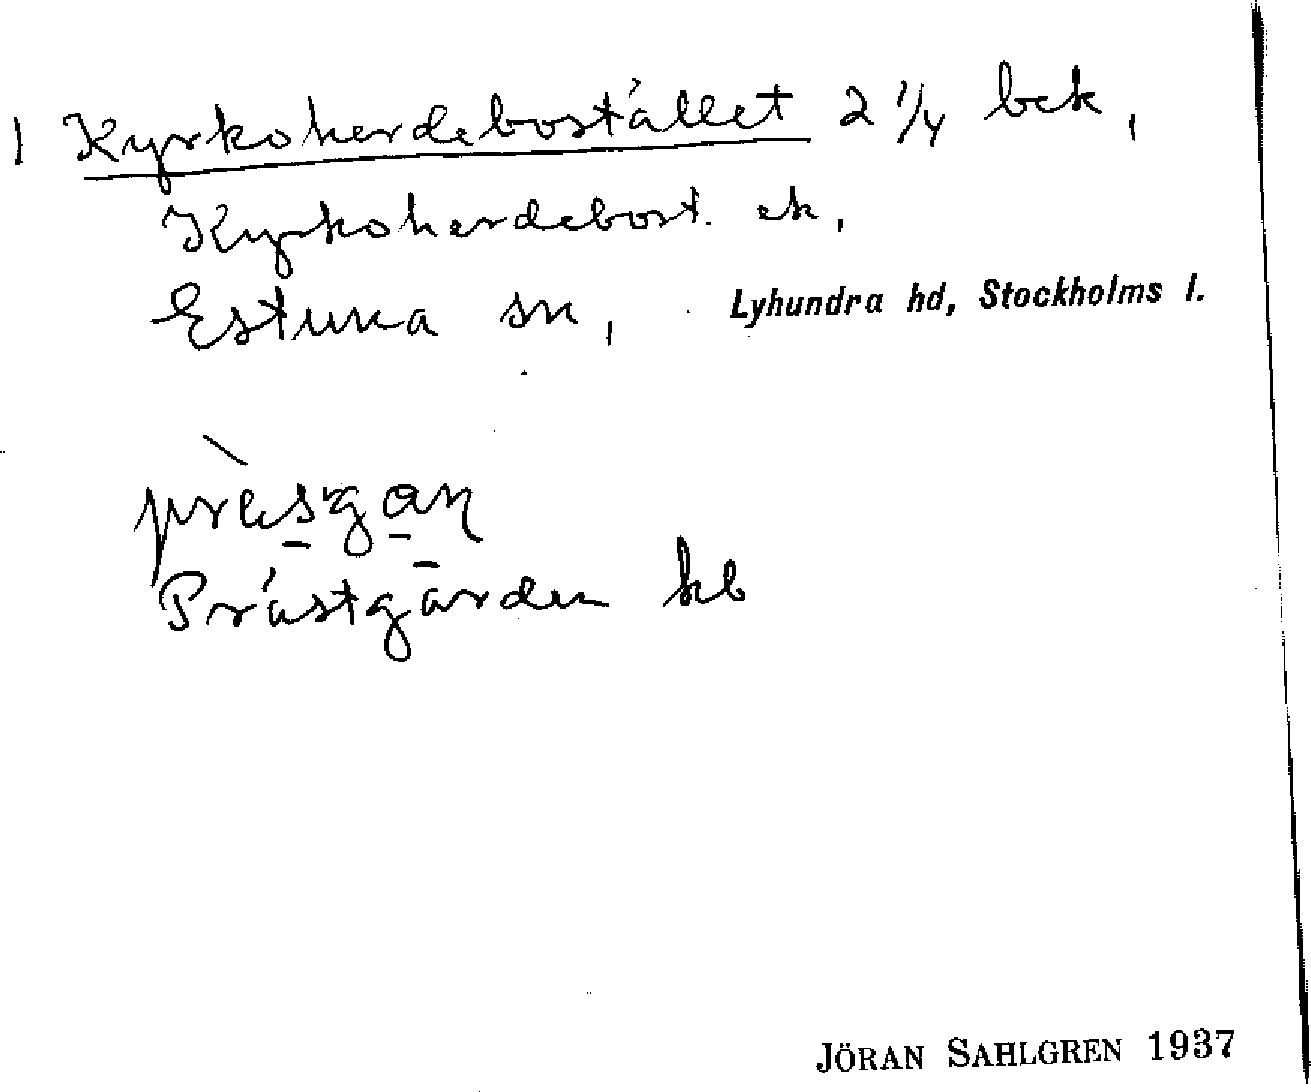 1 Kyrkoherdebostället 2 1/4 bek,
Kyrkoherdebost. ek,
Estuna sn, Lyhundra hd, Stockholms l.
prèsgan
Prästgården kb
JÖRAN SAHLGREN 1937